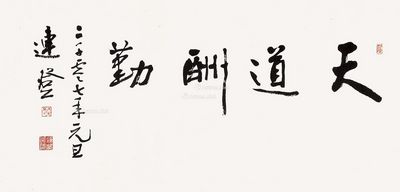 天道酬勤
二千零七年元旦
連登